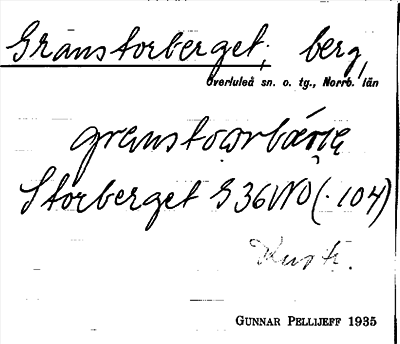 Granstorberget, berg,
Överluleå sn. o. tg., Norrb. län
granstoorbærje
Storberget S 36 NO (· 104)
GUNNAR PELLIJEFF 1935